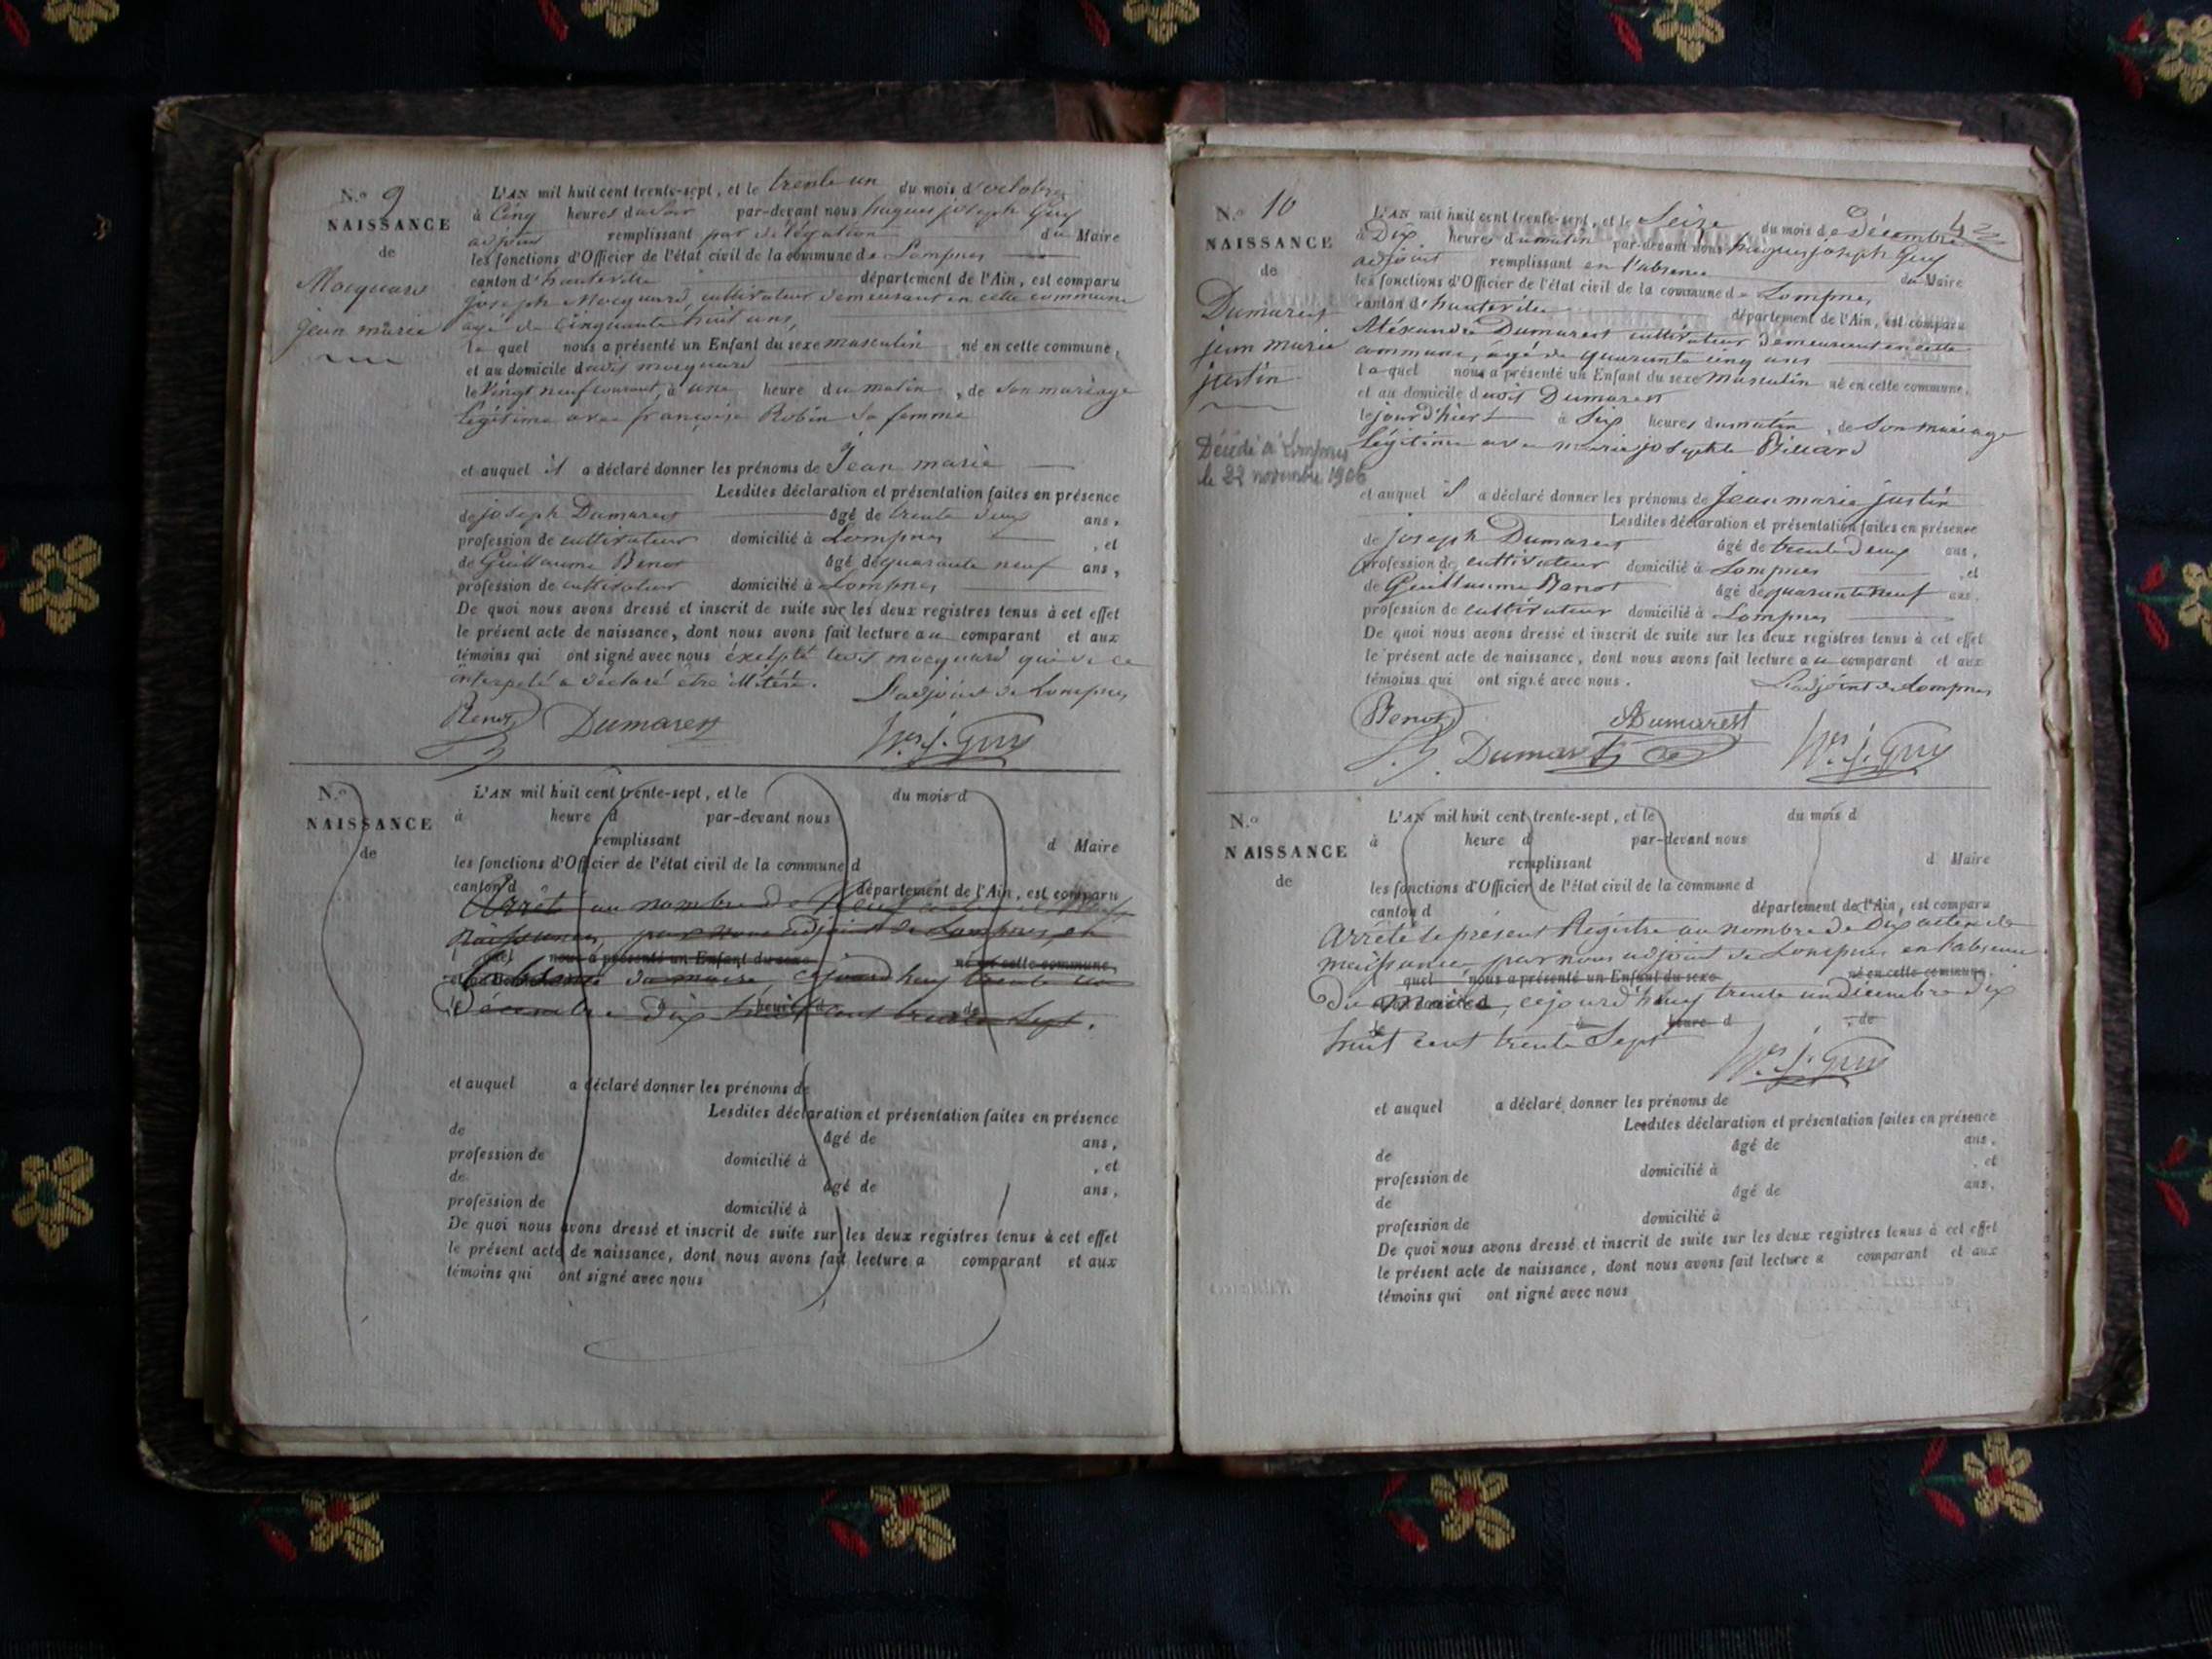 N.o 9
NAISSANCE
de
Mocquard
jean marie
L'AN mil huit cent trente-sept, et le trente un du mois d'octobre
à Cinq heures du soir par-devant nous hugues joseph Guy
adjoint remplissant par délégation du Maire
les fonctions d'Officier de l'état civil de la commune de Lompnes
canton d'hauteville département de l'Ain, est comparu
joseph Mocquard, cultivateur demeurant en cette commune
âgé de Cinquante huit ans,
lequel nous a présenté un Enfant du sexe masculin né en cette commune,
et au domicile dudit mocquard
le Vingt neuf courant, à une heure du matin, de son mariage
légitime avec françoise Robin sa femme
et auquel il a déclaré donner les prénoms de Jean marie
Lesdites déclaration et présentation faites en présence
de joseph Dumarest âgé de trente deux ans,
profession de cultivateur domicilié à Lompnes, et
de Guillaume Benot âgé de quarante neuf ans,
profession de cultivateur domicilié à Lompnes
De quoi nous avons dressé et inscrit de suite sur les deux registres tenus à cet effet
le présent acte de naissance, dont nous avons fait lecture au comparant et aux
témoins qui ont signé avec nous ledit mocquard qui de ce
interpelé a déclaré etre illitéré. L'adjoint de Lompnes
Benot Dumarest H.es J. Guy
N.o
NAISSANCE
de
L'AN mil huit cent trente-sept, et le du mois d
à heure d par-devant nous
remplissant d Maire
les fonctions d'Officier de l'état civil de la commune d
canton d département de l'Ain, est comparu
Arrêté au nombre de Neuf
Naissances, par nous adjoint de Lompnes, en
l quel nous a présenté un Enfant du sexe né en cette commune,
l'absence du maire, cejourd'huy trente un
le à heure d de
Décembre dix huit cent trente Sept.
et auquel a déclaré donner les prénoms de
Lesdites déclaration et présentation faites en présence
de âgé de ans,
profession de domicilié à , et
de âgé de ans,
profession de domicilié à
De quoi nous avons dressé et inscrit de suite sur les deux registres tenus à cet effet
le présent acte de naissance, dont nous avons fait lecture a comparant et aux
témoins qui ont signé avec nous
N.o 10
NAISSANCE
de
Dumarest
jean marie
justin
Décédé à Lompnes
le 22 novembre 1906
42
L'AN mil huit cent trente-sept, et le Seize du mois de décembre
à Dix heures du matin par-devant nous hugues joseph Guy
adjoint remplissant en l'absence du Maire
les fonctions d'Officier de l'état civil de la commune de Lompnes
canton d'hauteville département de l'Ain, est comparu
Aléxandre Dumarest cultivateur demeurant en cette
commune, âgé de quarante cinq ans
lequel nous a présenté un Enfant du sexe masculin né en cette commune,
et au domicile dudit Dumarest
le jour d'hier à Six heures du matin, de Son mariage
légitime avec marie josephte Billard
et auquel il a déclaré donner les prénoms de Jean marie justin
Lesdites déclaration et présentation faites en présence
de joseph Dumarest âgé de trente deux ans,
profession de cultivateur domicilié à Lompnes, et
de Guillaume Benot âgé de quarante neuf ans,
profession de cultivateur domicilié à Lompnes
De quoi nous avons dressé et inscrit de suite sur les deux registres tenus à cet effet
le présent acte de naissance, dont nous avons fait lecture au comparant et aux
témoins qui ont signé avec nous. L'adjoint de Lompnes
Benot ADumarest
Dumarest H.es J. Guy
N.o
NAISSANCE
de
L'AN mil huit cent trente-sept, et le du mois d
à heure d par-devant nous
remplissant d Maire
les fonctions d'Officier de l'état civil de la commune d
canton d département de l'Ain, est comparu
Arrêté le présent Régistre au nombre de Dix actes de
naissances, par nous adjoint de Lompnes en l'absence
l quel nous a présenté un Enfant du sexe né en cette commune,
Du maire, cejourd'huy trente un décembre dix
le à heure d , de
huit cent trente Sept
H.es J. Guy
et auquel a déclaré donner les prénoms de
Lesdites déclaration et présentation faites en présence
de âgé de ans,
profession de domicilié à , et
de âgé de ans,
profession de domicilié à
De quoi nous avons dressé et inscrit de suite sur les deux registres tenus à cet effet
le présent acte de naissance, dont nous avons fait lecture a comparant et aux
témoins qui ont signé avec nous